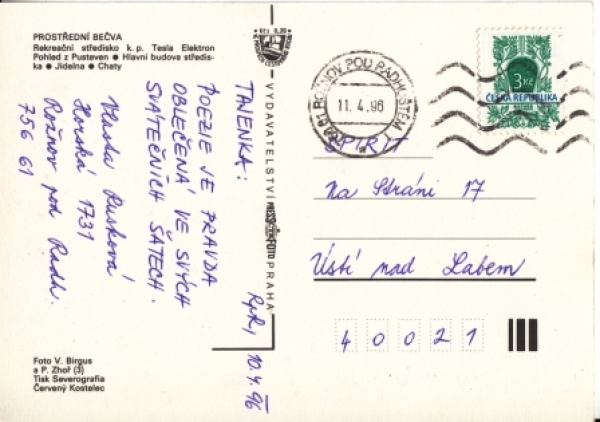 PROSTŘEDNÍ BEČVA
Rekreační středisko k. p. Tesla Elektron
Pohled z Pusteven ● Hlavní budova středis-
ka ● Jídelna ● Chaty
TAJENKA:
POEZIE JE PRAVDA
OBLEČENÁ VE SVÝCH
SVÁTEČNÍCH ŠATECH.
Vlasta Rusková
Horská 1731
Rožnov pod Radh.
756 61
10.4.96
Foto V. Birgus
a P. Zhoř (3)
Tisk Severografia
Červený Kostelec
VYDAVATELSTVÍ
FOTO
PRAHA
756 61 ROŽNOV POD RADHOŠTĚM 1
11.4.96
3 Kč
ČESKÁ REPUBLIKA
SPIRIT
Na Stráni 17
Ústí nad Labem
40021